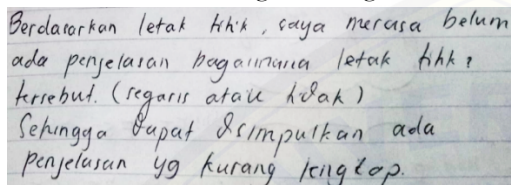 Berdasarkan letak titik, saya merasa belum
ada penjelasan bagaimana letak titik2
tersebut. (segaris atau tidak)
Sehingga dapat disimpulkan ada
penjelasan yg kurang lengkap.